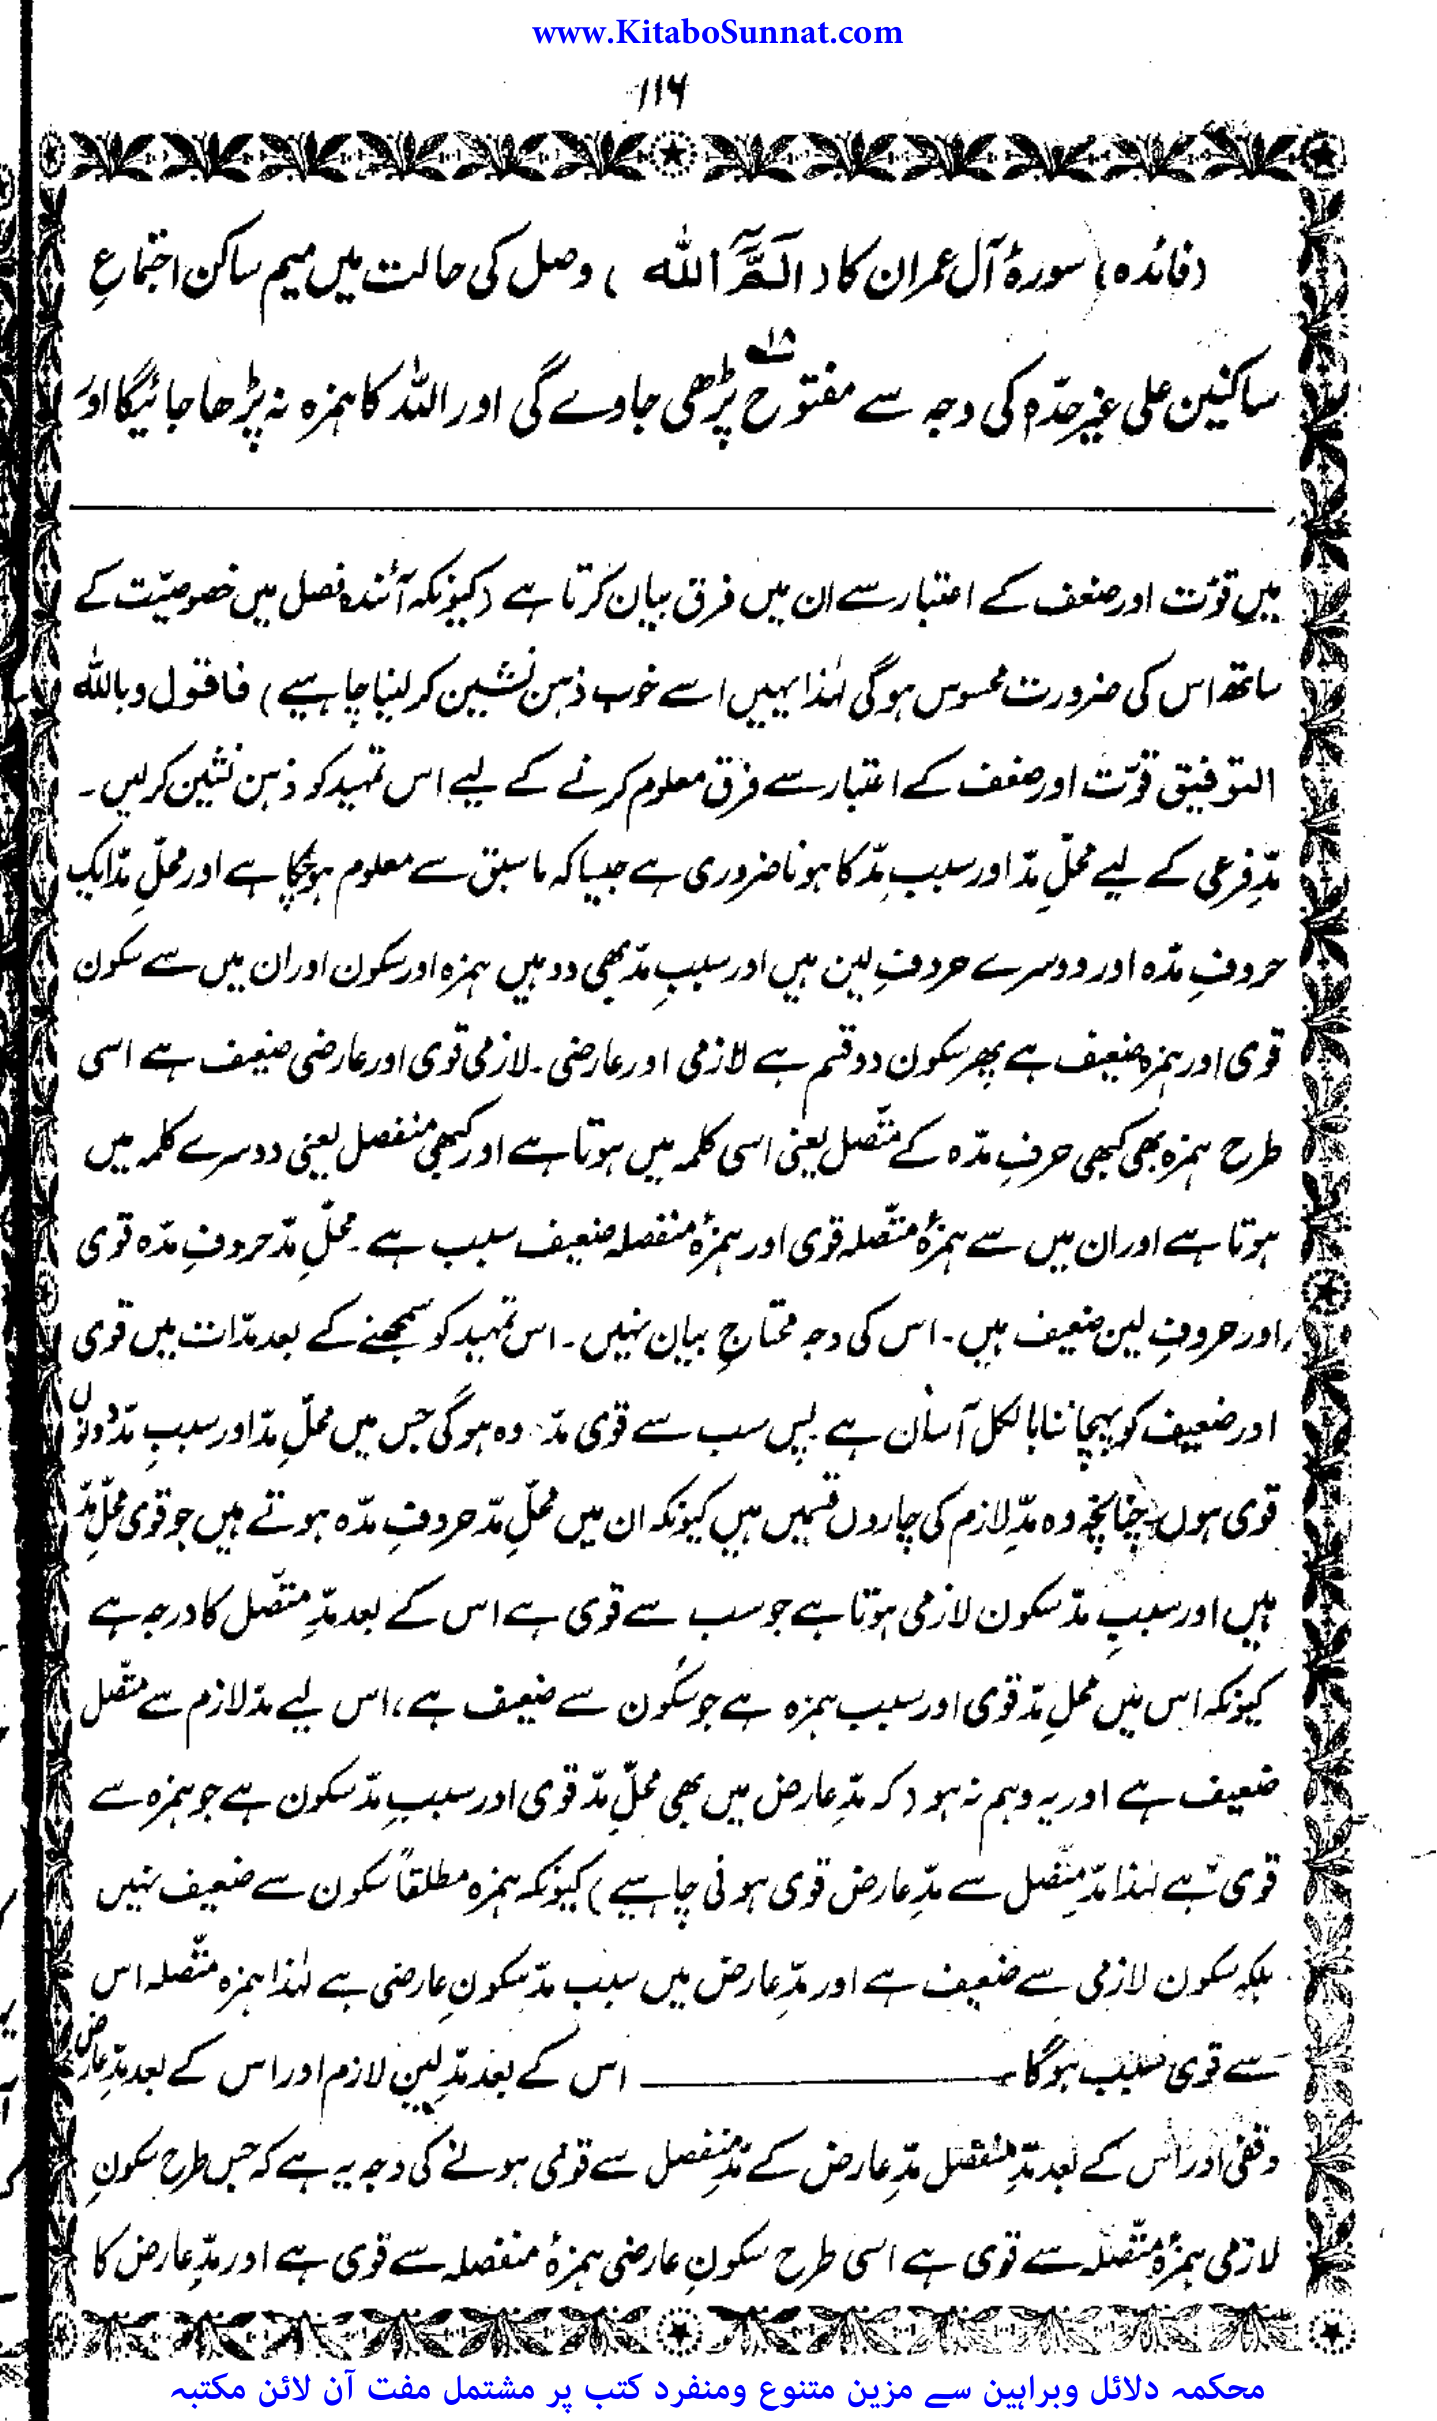 www.KitaboSunnat.com
۱۱۶
(فائدہ) سورۂ آل عمران کا (الٓمّٓ اَللّٰه) وصل کی حالت میں میم ساکن اجتماعِ
ساکنین علی غیر حدّہٖ کی وجہ سے مفتوح ۱۸؎ پڑھی جاوے گی اور اللہ کا ہمزہ نہ پڑھا جائیگا اور
میں قوّت اور ضعف کے اعتبار سے ان میں فرق بیان کرتا ہے (کیونکہ آئندہ فصل میں خصوصیّت کے
ساتھ اس کی ضرورت محسوس ہوگی لہٰذا یہیں اسے خوب ذہن نشین کر لینا چاہیے) فاقول وباللہ
التوفیق قوّت اور ضعف کے اعتبار سے فرق معلوم کرنے کے لیے اس تمہید کو ذہن نشین کرلیں۔
مدِّ فرعی کے لیے محلِّ مدّ اور سببِ مدّ کا ہونا ضروری ہے جیسا کہ ماسبق سے معلوم ہوچکا ہے اور محلِّ مدّ ایک
حروفِ مدّہ اور دوسرے حروفِ لین ہیں اور سببِ مدّ بھی دو ہیں ہمزہ اور سکون اور ان میں سے سکون
قوی اور ہمزہ ضعیف ہے پھر سکون دو قسم ہے لازمی اور عارضی۔ لازمی قوی اور عارضی ضعیف ہے اسی
طرح ہمزہ بھی کبھی حرفِ مدّہ کے متّصل یعنی اسی کلمہ میں ہوتا ہے اور کبھی منفصل یعنی دوسرے کلمہ میں
ہوتا ہے اور ان میں سے ہمزۂ متّصلہ قوی اور ہمزۂ منفصلہ ضعیف سبب ہے۔ محلِّ مدّ حروفِ مدّہ قوی
اور حروفِ لین ضعیف ہیں۔ اس کی وجہ محتاجِ بیان نہیں۔ اس تمہید کو سمجھنے کے بعد مدّات میں قوی
اور ضعیف کو پہچاننا بالکل آسان ہے پس سب سے قوی مدّ وہ ہوگی جس میں محلِّ مدّ اور سببِ مدّ دونوں
قوی ہوں چنانچہ وہ مدِّ لازم کی چاروں قسمیں ہیں کیونکہ ان میں محلِّ مدّ حروفِ مدّہ ہوتے ہیں جو قوی محلِّ مدّ
ہیں اور سببِ مدّ سکون لازمی ہوتا ہے جو سب سے قوی ہے اس کے بعد مدِّ متّصل کا درجہ ہے
کیونکہ اس میں محلِ مدّ قوی اور سبب ہمزہ ہے جو سکون سے ضعیف ہے، اس لیے مدّ لازم سے متّصل
ضعیف ہے اور یہ وہم نہ ہو (کہ مدِّ عارض میں بھی محلِّ مدّ قوی اور سببِ مدّ سکون ہے جو ہمزہ سے
قوی ہے لہٰذا مدِّ متّصل سے مدِّ عارض قوی ہونی چاہیے) کیونکہ ہمزہ مطلقاً سکون سے ضعیف نہیں
بلکہ سکون لازمی سے ضعیف ہے اور مدِّ عارض میں سبب مدّ سکونِ عارضی ہے لہٰذا ہمزہ متّصلہ اس
سے قوی سبب ہوگا۔ ــــــــــــــ اس کے بعد مدِّ لینِ لازم اور اس کے بعد مدِّ عارض
وقفی اور اس کے بعد مدِّ منفصل مدِّ عارض کے مدِّ منفصل سے قوی ہونے کی وجہ یہ ہے کہ جس طرح سکونِ
لازمی ہمزۂ متّصلہ سے قوی ہے اسی طرح سکونِ عارضی ہمزۂ منفصلہ سے قوی ہے اور مدِّ عارض کا
محکمہ دلائل وبراہین سے مزین متنوع ومنفرد کتب پر مشتمل مفت آن لائن مکتبہ